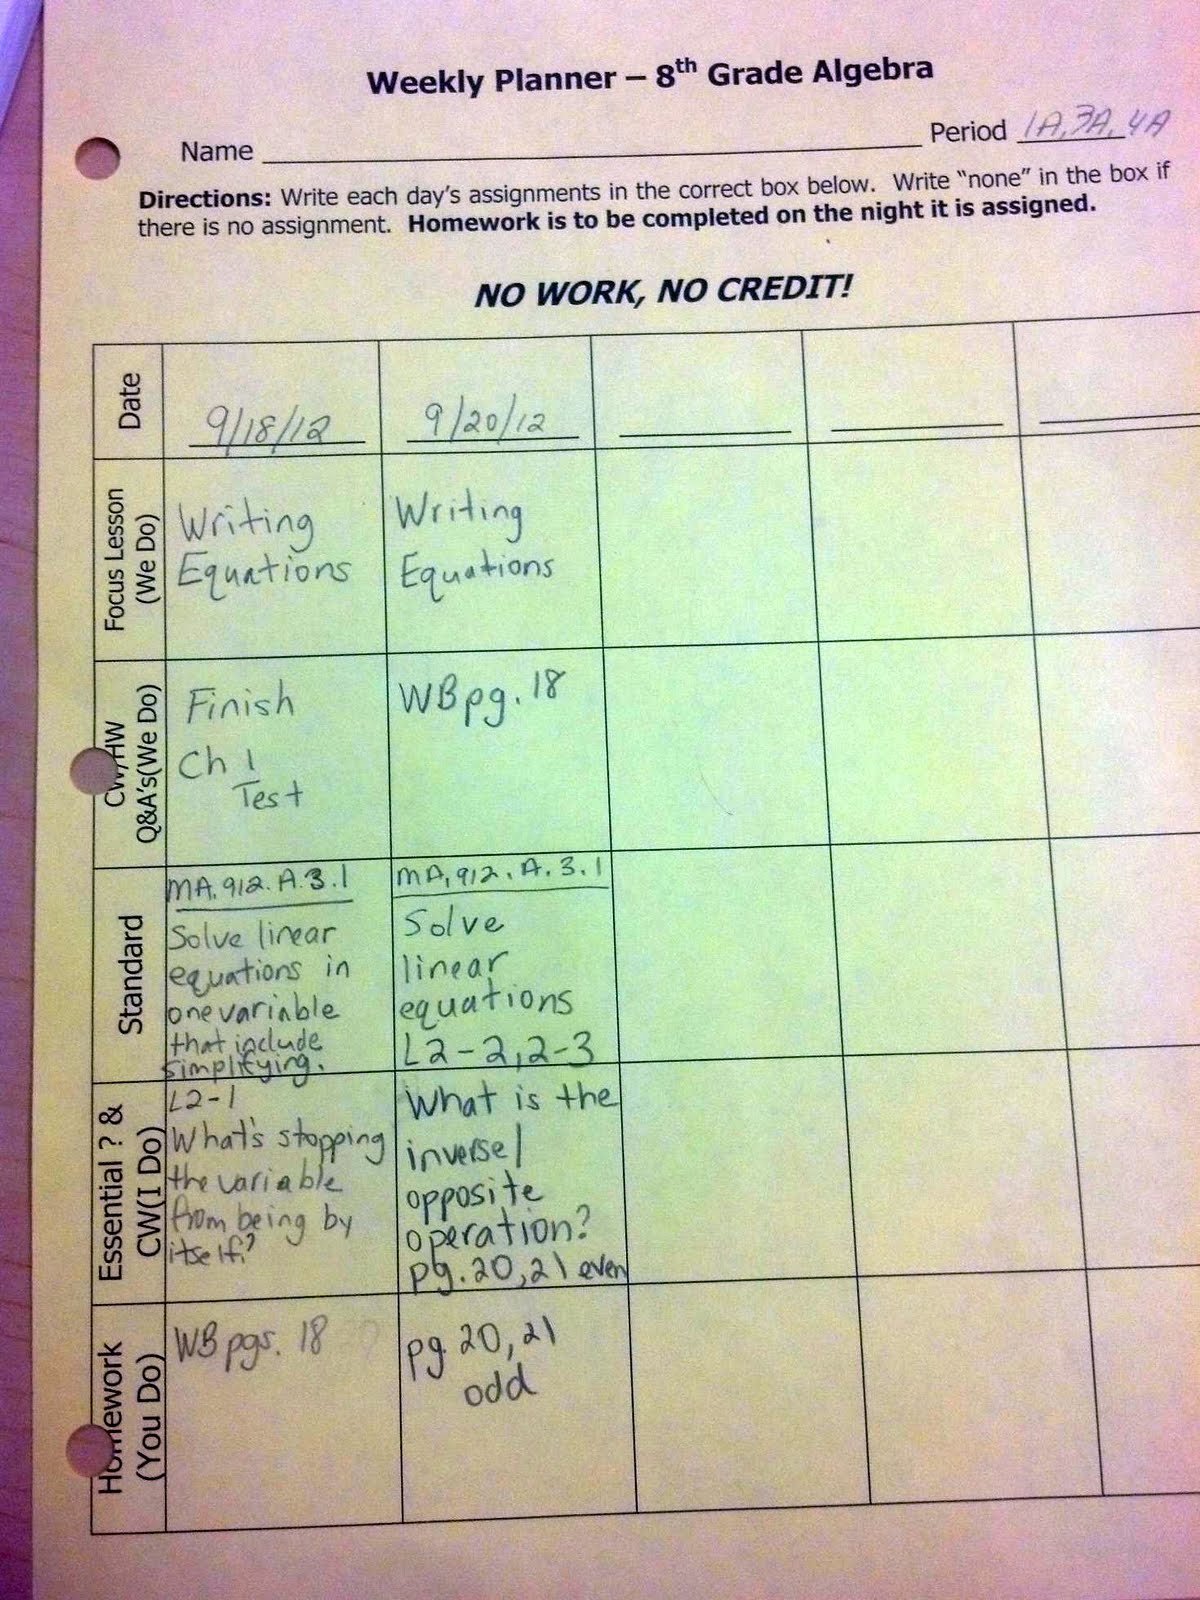 Weekly Planner – 8th Grade Algebra
Name
Period 1A, 3A, 4A
Directions: Write each day's assignments in the correct box below. Write "none" in the box if
there is no assignment. Homework is to be completed on the night it is assigned.
NO WORK, NO CREDIT!
Date
9/18/12
9/20/12
Focus Lesson
(We Do)
Writing
Equations
Writing
Equations
CW/HW
Q&A's(We Do)
Finish
Ch 1
Test
WB pg. 18
Standard
MA.912.A.3.1
Solve linear
equations in
one variable
that include
simplifying.
MA.912.A.3.1
Solve
linear
equations
L2-2, 2-3
Essential ? &
CW(I Do)
L2-1
What's stopping
the variable
from being by
itself?
What is the
inverse/
opposite
operation?
pg. 20, 21 even
Homework
(You Do)
WB pgs. 18
pg. 20, 21
odd